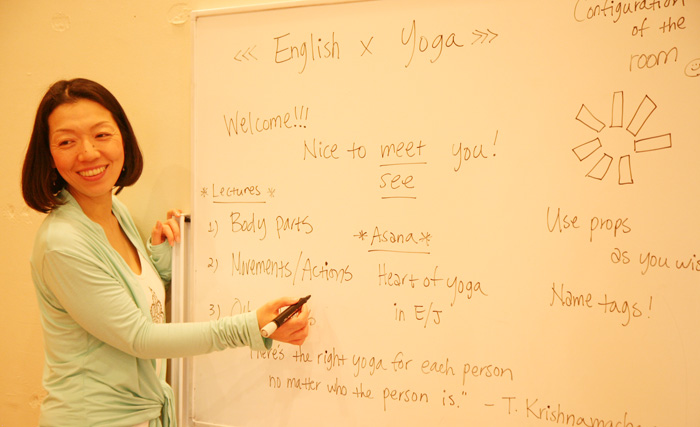 <<< English x Yoga >>>
Configuration
of the
room
Welcome!!!
Nice to meet you!
see
* Lectures *
1) Body parts
2) Movements/Actions
3)
* Asana *
Heart of yoga
in E/J
Use props
as you
Name tags!
"Here's the right yoga for each person
no matter who the person is." - T.